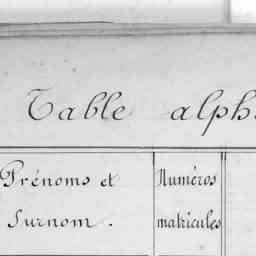 Table alph
Prénoms et
Surnom.
Numéros
matricules